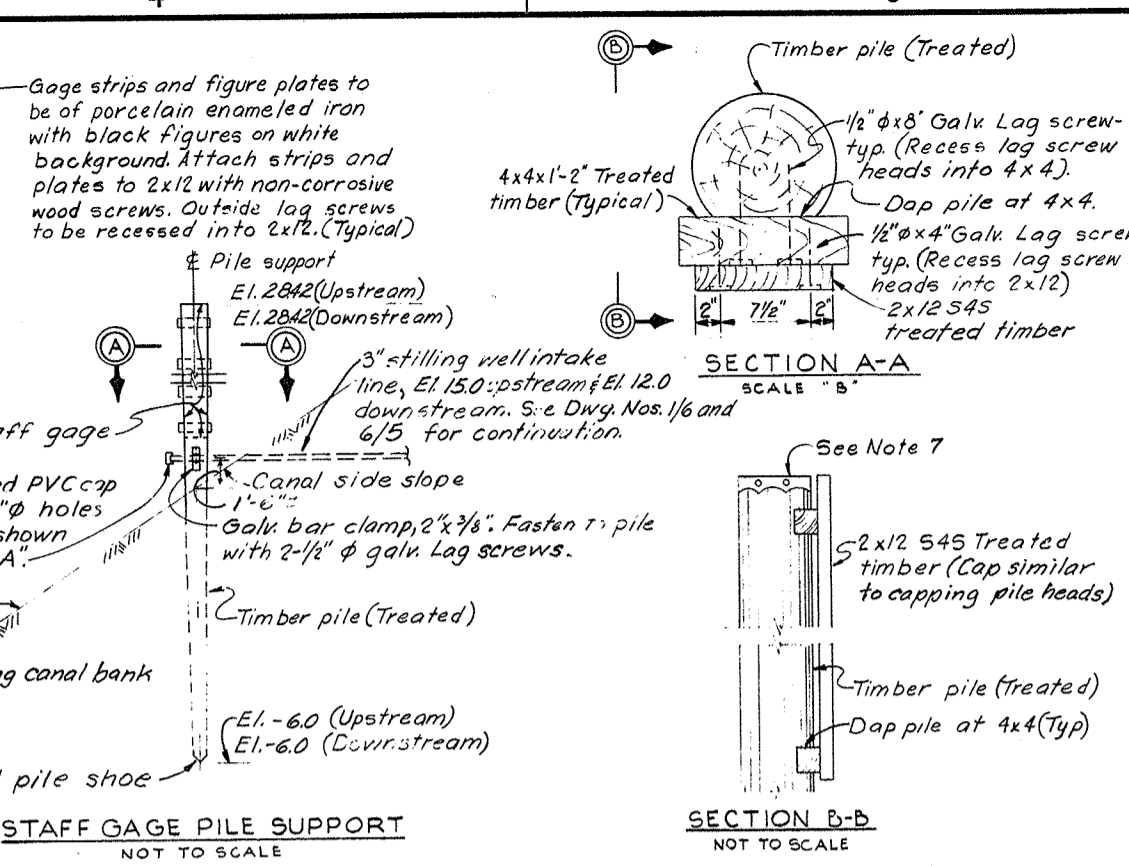 Gage strips and figure plates to
be of porcelain enameled iron
with black figures on white
background. Attach strips and
plates to 2x12 with non-corrosive
wood screws. Outside lag screws
to be recessed into 2x12. (Typical)
℄ Pile support
El. 2842 (Upstream)
El. 2842 (Downstream)
A
A
3" stilling well intake
line, El. 15.0 upstream & El. 12.0
downstream. See Dwg. Nos. 1/6 and
6/5 for continuation.
aff gage
Canal side slope
1'-6"±
ed PVC cap
"φ holes
shown
A".
Galv. bar clamp, 2"x3/8". Fasten to pile
with 2-1/2" φ galv. Lag screws.
Timber pile (Treated)
ng canal bank
El. -6.0 (Upstream)
El. -6.0 (Downstream)
l pile shoe
STAFF GAGE PILE SUPPORT
NOT TO SCALE
B
Timber pile (Treated)
1/2" φ x 8" Galv. Lag screw-
typ. (Recess lag screw
heads into 4x4).
4x4x1'-2" Treated
timber (Typical)
Dap pile at 4x4.
1/2" φ x 4" Galv. Lag screw
typ. (Recess lag screw
heads into 2x12)
2x12 S4S
treated timber
B
2" 7 1/2" 2"
SECTION A-A
SCALE "B"
See Note 7
2x12 S4S Treated
timber (Cap similar
to capping pile heads)
Timber pile (Treated)
Dap pile at 4x4 (Typ)
SECTION B-B
NOT TO SCALE